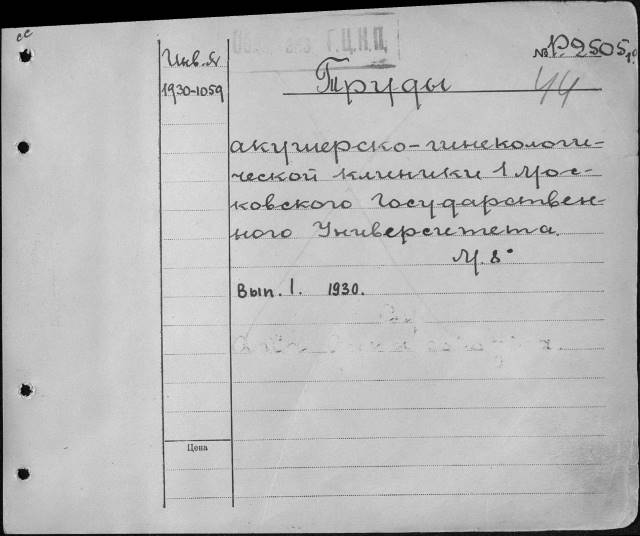 ес
Инв. №
Г.Ц.К.П.
№ Р.2505
1930-1059
Труды
44
акушерско-гинекологи-
ческой клиники 1 Мос-
ковского Государствен-
ного Университета.
М. 8°
Вып. I. 1930.
Цена